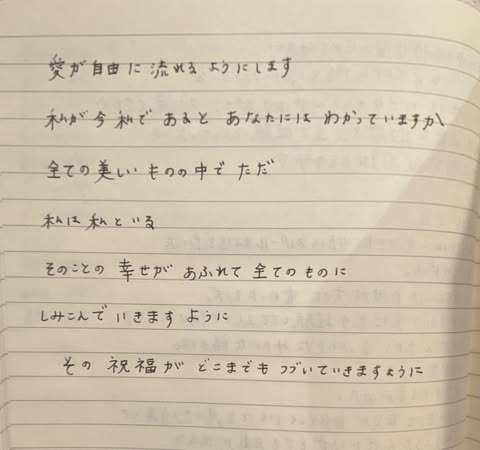 愛が自由に流れるようにします
私が今私であると あなたには わかっていますか
全ての美しいものの中で ただ
私は私といる
そのことの 幸せが あふれて 全てのものに
しみこんで いきます ように
その 祝福が どこまでも つづいていきますように